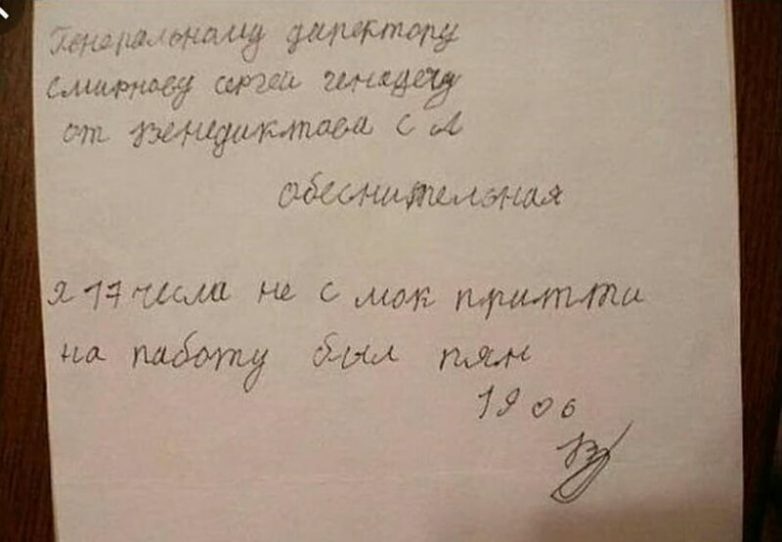 Генеральному директору
смирнову сергею генадечу
от Венедиктова С Л
обеснительная
я 17 числа не с мок притти
на паботу был пян
19 06